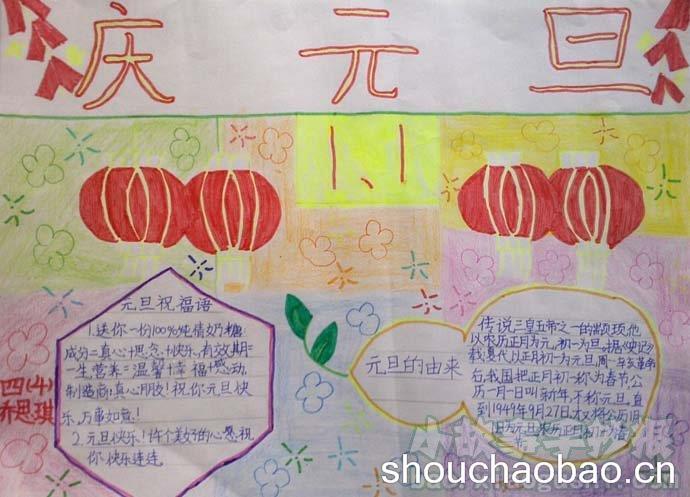 庆 元 旦
1、1
元旦祝福语
1.送你一份100%纯情奶糖
成分=真心+思念+快乐,有效期=
一生,营养=温馨+幸福+感动,
制造商:真心朋友!祝你元旦快
乐,万事如意!
2.元旦快乐!许个美好的心愿祝
你快乐连连
四(4)
乔思琪
元旦的由来
传说三皇五帝之一的颛顼,他
以农历正月为元,初一为旦。据《史记》
载,夏代以正月初一为元旦,
名,我国把正月初一称为春节,公
历一月一日叫新年,不称元旦。直
到1949年9月27日,才又将公历
旧为元旦,农历正月初一为
节
小故事手抄报
shouchaobao.cn